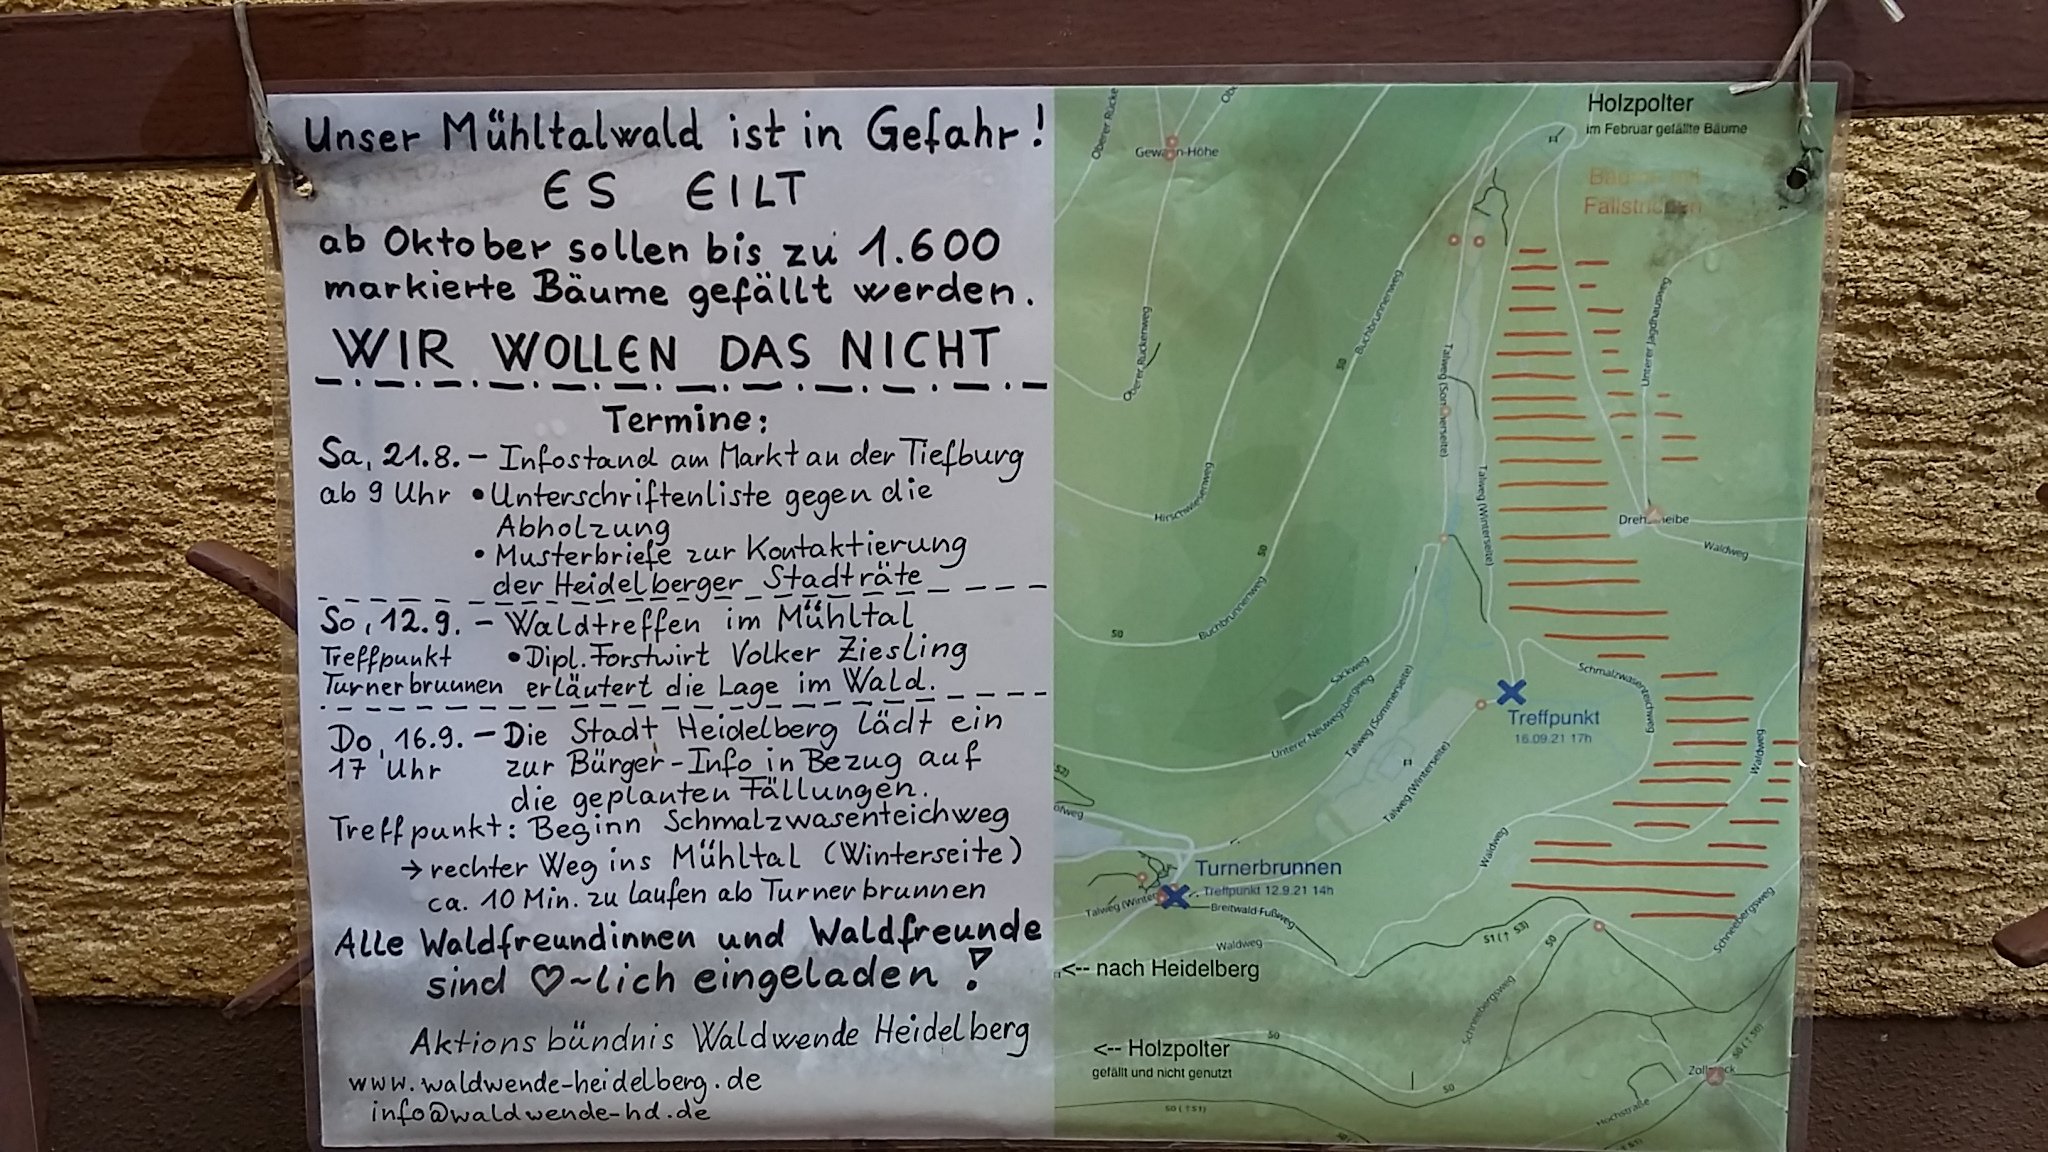 Unser Mühltalwald ist in Gefahr!
ES EILT
ab Oktober sollen bis zu 1.600
markierte Bäume gefällt werden.
WIR WOLLEN DAS NICHT
Termine:
Sa, 21.8. – Infostand am Markt an der Tiefburg
ab 9 Uhr • Unterschriftenliste gegen die
Abholzung
• Musterbriefe zur Kontaktierung
der Heidelberger Stadträte
So, 12.9. – Waldtreffen im Mühltal
Treffpunkt • Dipl. Forstwirt Volker Ziesling
Turnerbrunnen erläutert die Lage im Wald.
Do, 16.9. – Die Stadt Heidelberg lädt ein
17 Uhr zur Bürger-Info in Bezug auf
die geplanten Fällungen.
Treffpunkt: Beginn Schmalzwasenteichweg
→ rechter Weg ins Mühltal (Winterseite)
ca. 10 Min. zu laufen ab Turnerbrunnen
Alle Waldfreundinnen und Waldfreunde
sind ♡~lich eingeladen!
Aktionsbündnis Waldwende Heidelberg
www.waldwende-heidelberg.de
info@waldwende-hd.de
Holzpolter
im Februar gefällte Bäume
Oberer Rücke
Unterer Jagdhausweg
Buchbrunnenweg
50
Oberer Rückenweg
Talweg (Sommerseite)
Hirschwiesenweg
Talweg (Winterseite)
Waldweg
50
Buchbrunnenweg
50
Sackweg
Unterer Neuwegsbergweg
Talweg (Sommerseite)
Schmalzwasenteichweg
Treffpunkt
16.09.21 17h
Waldweg
Talweg (Winterseite)
Waldweg
Turnerbrunnen
Treffpunkt 12.9.21 14h
Talweg (Winter
Breitwald-Fußweg
Schneebergsweg
Waldweg
51 (↑ 53)
50
<-- nach Heidelberg
Schneebergsweg
50
<-- Holzpolter
gefällt und nicht genutzt
50
50 (↑ 50)
Hochstraße
50 (↑51)